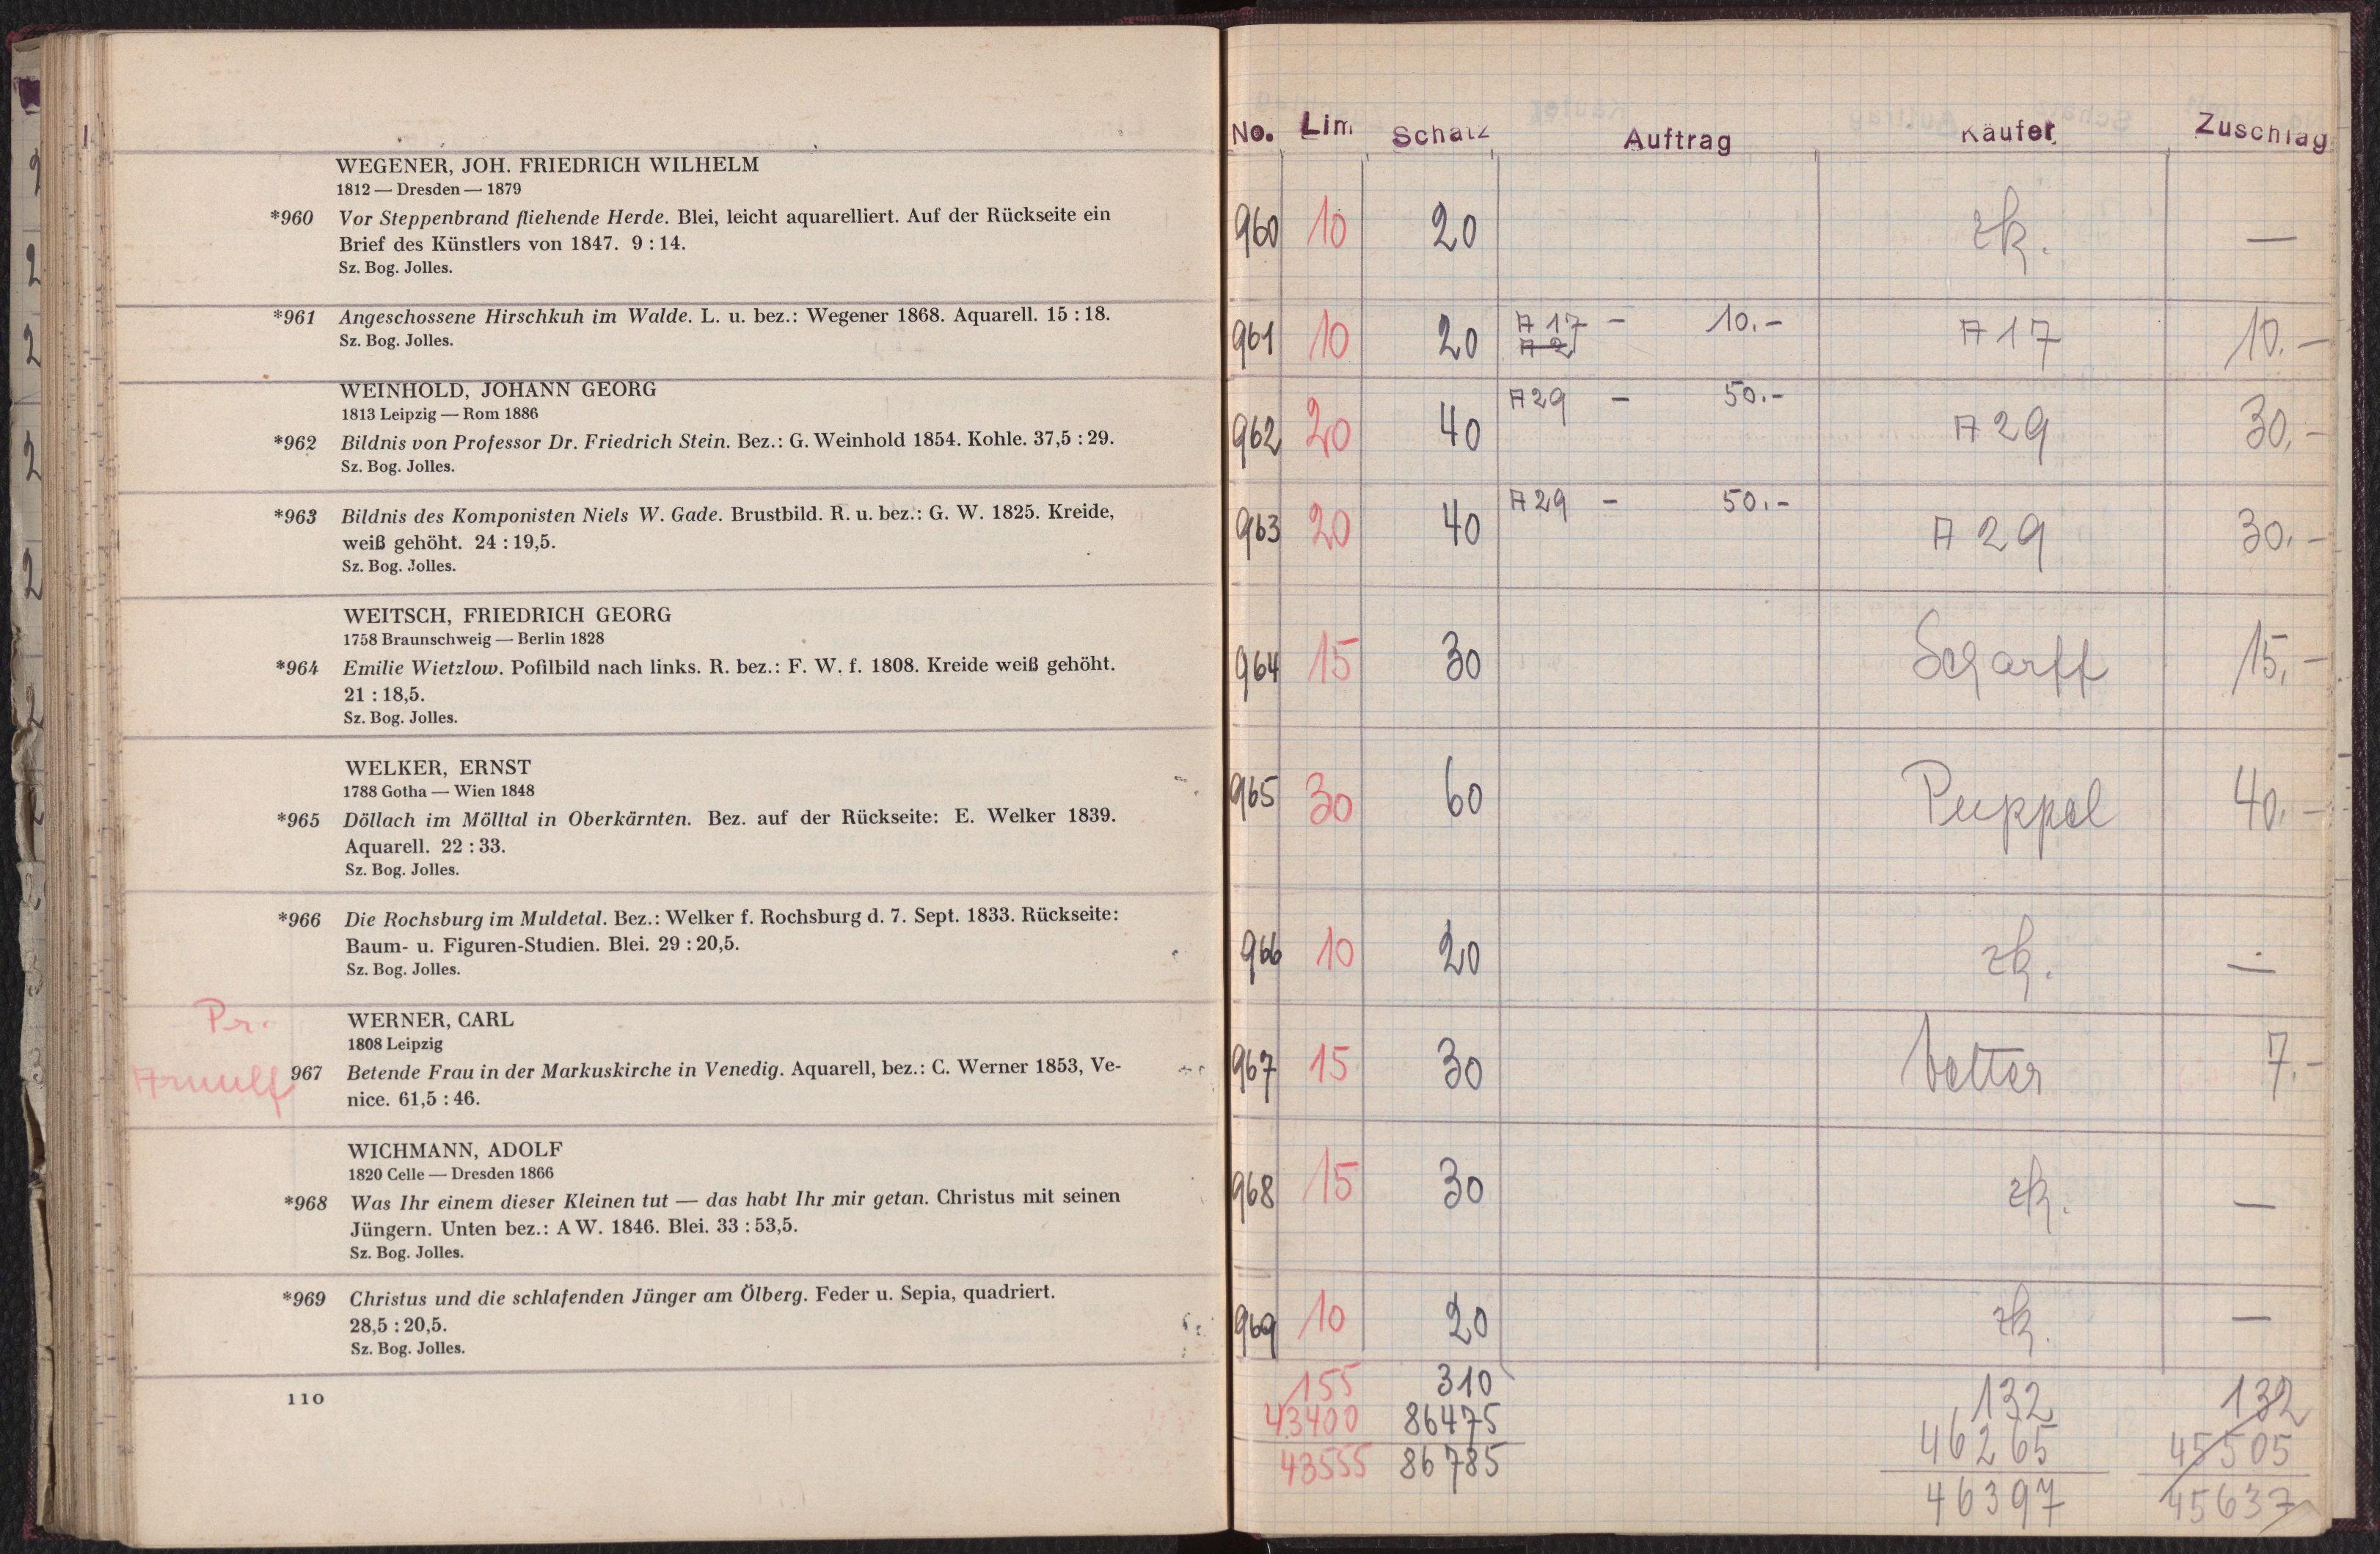 WEGENER, JOH. FRIEDRICH WILHELM
1812 — Dresden — 1879
*960 Vor Steppenbrand fliehende Herde. Blei, leicht aquarelliert. Auf der Rückseite ein
Brief des Künstlers von 1847. 9 : 14.
Sz. Bog. Jolles.
*961 Angeschossene Hirschkuh im Walde. L. u. bez.: Wegener 1868. Aquarell. 15 : 18.
Sz. Bog. Jolles.
WEINHOLD, JOHANN GEORG
1813 Leipzig — Rom 1886
*962 Bildnis von Professor Dr. Friedrich Stein. Bez.: G. Weinhold 1854. Kohle. 37,5 : 29.
Sz. Bog. Jolles.
*963 Bildnis des Komponisten Niels W. Gade. Brustbild. R. u. bez.: G. W. 1825. Kreide,
weiß gehöht. 24 : 19,5.
Sz. Bog. Jolles.
WEITSCH, FRIEDRICH GEORG
1758 Braunschweig — Berlin 1828
*964 Emilie Wietzlow. Pofilbild nach links. R. bez.: F. W. f. 1808. Kreide weiß gehöht.
21 : 18,5.
Sz. Bog. Jolles.
WELKER, ERNST
1788 Gotha — Wien 1848
*965 Döllach im Mölltal in Oberkärnten. Bez. auf der Rückseite: E. Welker 1839.
Aquarell. 22 : 33.
Sz. Bog. Jolles.
*966 Die Rochsburg im Muldetal. Bez.: Welker f. Rochsburg d. 7. Sept. 1833. Rückseite:
Baum- u. Figuren-Studien. Blei. 29 : 20,5.
Sz. Bog. Jolles.
Pr.
WERNER, CARL
1808 Leipzig
Arnulf 967 Betende Frau in der Markuskirche in Venedig. Aquarell, bez.: C. Werner 1853, Ve-
nice. 61,5 : 46.
WICHMANN, ADOLF
1820 Celle — Dresden 1866
*968 Was Ihr einem dieser Kleinen tut — das habt Ihr mir getan. Christus mit seinen
Jüngern. Unten bez.: A W. 1846. Blei. 33 : 53,5.
Sz. Bog. Jolles.
*969 Christus und die schlafenden Jünger am Ölberg. Feder u. Sepia, quadriert.
28,5 : 20,5.
Sz. Bog. Jolles.
110
No. Lim Schätz Auftrag Käufer Zuschlag
960 10 20 zk. —
961 10 20 A 17 – 10.– A 17 10.–
A 2
962 20 40 A 29 – 50.– A 29 30.–
963 20 40 A 29 – 50.– A 29 30.–
964 15 30 Scharff 15,–
965 30 60 Puppel 40.–
966 10 20 zk. —
967 15 30 Vetter 7.–
968 15 30 zk. —
969 10 20 zk. —
155 310 132 132
43400 86475 46265 45505
43555 86785 46397 45637